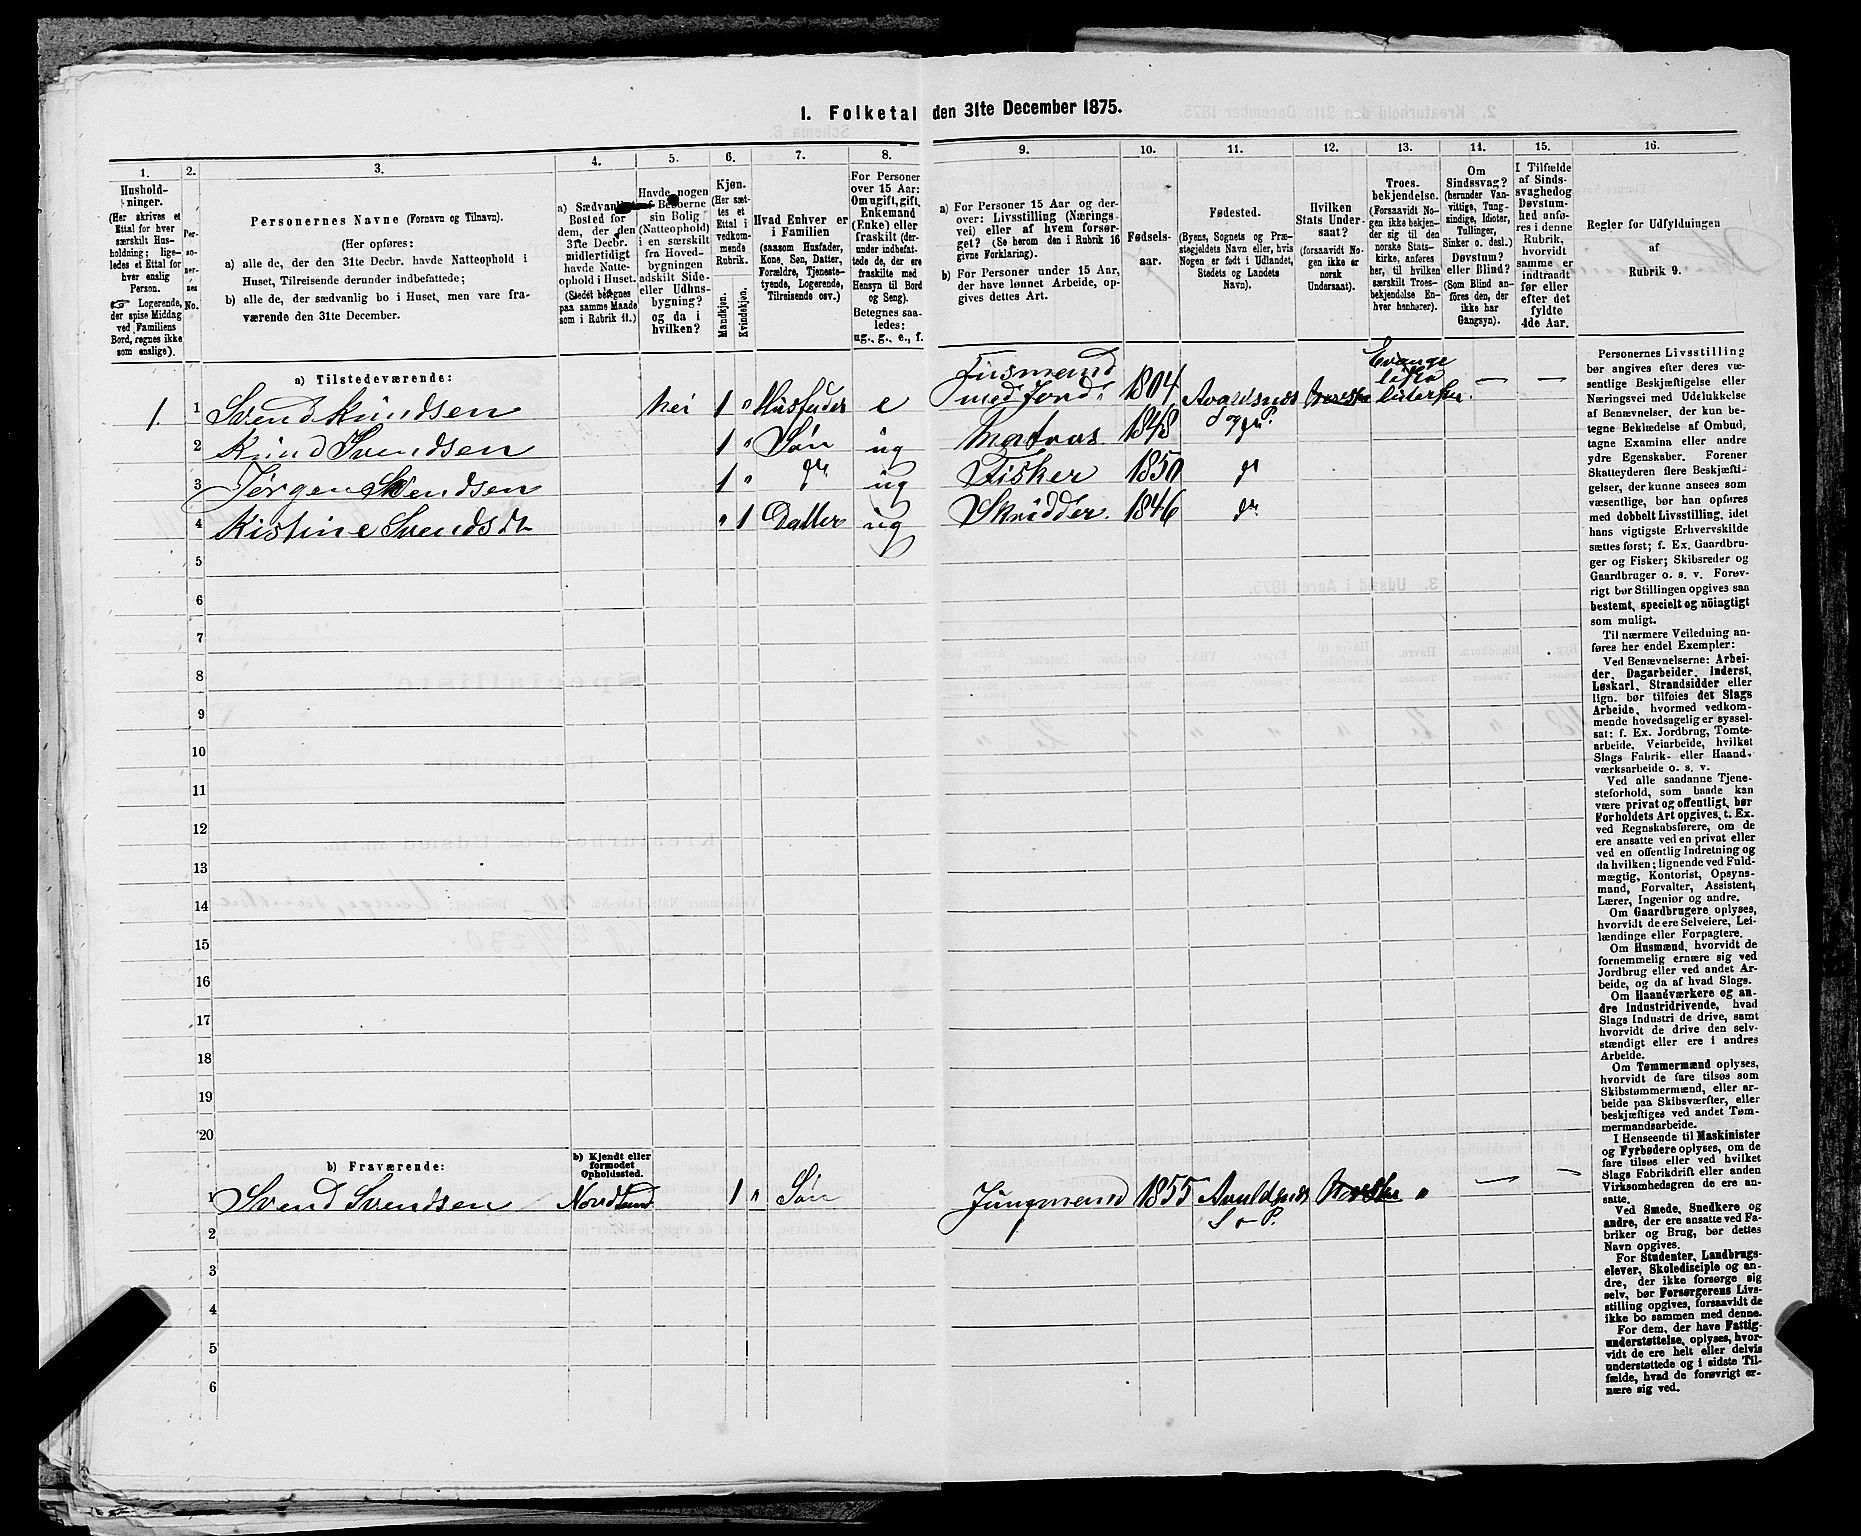 1. Folketal den 31te December 1875.
1.
Hushold-
ninger.
(Her skrives et
Ettal for hver
særskilt Hus-
holdning; lige-
ledes et Ettal for
hver enslig
Person.
Logerende,
der spise Middag
ved Familiens
Bord, regnes ikke
som enslige).
2.
Per-
so-
ner-
nes
No.
3.
Personernes Navne (Fornavn og Tilnavn).
(Her opføres:
a) alle de, der den 31te Decbr. havde Natteophold i
Huset, Tilreisende derunder indbefattede;
b) alle de, der sædvanlig bo i Huset, men vare fra-
værende den 31te December.
4.
a) Sædvanligt
Bosted for
dem, der den
31te Decbr.
midlertidigt
havde Natte-
ophold i Huset.
(Stedet betegnes
paa samme Maade
som i Rubrik 11.)
5.
Havde nogen
af Beboerne
sin Bolig
(Natteophold)
i en særskilt
fra Hoved-
bygningen
adskilt Side-
eller Udhus-
bygning?
og da i
hvilken?
6.
Kjøn.
(Her sæt-
tes et
Ettal i
vedkom-
mende
Rubrik.
Mandkjøn.
Kvindekjøn.
7.
Hvad Enhver er
i Familien
(saasom Husfader,
Kone, Søn, Datter,
Forældre, Tjeneste-
tyende, Logerende,
Tilreisende osv.)
8.
For Personer
over 15 Aar:
Om ugift, gift,
Enkemand
(Enke) eller
fraskilt (der-
under indbefat-
tede de, der ere
fraskilte med
Hensyn til Bord
og Seng).
Betegnes saa-
ledes:
ug., g., e., f.
9.
a) For Personer 15 Aar og der-
over: Livsstilling (Nærings-
vei) eller af hvem forsør-
get? (Se herom den i Rubrik 16
givne Forklaring).
b) For Personer under 15 Aar,
der have lønnet Arbeide, op-
gives dettes Art.
10.
Fødsels-
aar.
11.
Fødested.
(Byens, Sognets og Præ-
stegjeldets Navn eller, hvis
Nogen er født i Udlandet,
Stedets og Landets
Navn).
12.
Hvilken
Stats Under-
saat?
(forsaavidt No-
gen ikke er
norsk
Undersaat).
13.
Troes-
bekjendelse.
(Forsaavidt No-
gen ikke bekjen-
der sig til den
norske Stats-
kirke, anføres
her, til hvilken
særskilt Troes-
bekjendelse En-
hver henhører).
14.
Om
Sindssvag?
(herunder Van-
vittige, Tung-
sindige, Idioter,
Tullinger,
Sinker o. desl.)
Døvstum?
eller Blind?
(Som Blind an-
føres den, der
ikke har
Gangsyn).
15.
I Tilfælde
af Sinds-
svaghed og
Døvstum-
hed anfø-
res i denne
Rubrik,
hvorvidt
samme er
indtraadt
før eller
efter det
fyldte
4de Aar.
16.
Regler for Udfyldningen
af
Rubrik 9.
a) Tilstedeværende:
1. 1 Svend Knudsen nei 1 " Husfader e Husmand med Jord 1804 Avaldsnes Sogn P. Norske Evange liske listerske — —
2 Knud Svendsen 1 " Søn ug Matros 1848
3 Jørgen Svendsen 1 " do ug Fisker 1850 do
4 Kistine Svendsdt " 1 Datter ug 1846 do
5
6
7
8
9
10
11
12
13
14
15
16
17
18
19
20
b) Fraværende:
b) Kjendt eller
formodet
Opholdssted.
1 Svend Svendsen Nordland 1 " Søn Jungmand 1855 Avaldsnes Norske " — —
S o P.
2
3
4
5
6
Personernes Livsstilling
bør angives efter deres væ-
sentlige Beskjæftigelse eller
Næringsvei med Udelukkelse
af Benævnelser, der kun be-
tegne Beklædelse af Ombud,
tagne Examina eller andre
ydre Egenskaber. Forener
Skatteyderen flere Beskjæfti-
gelser, der kunne ansees som
væsentlige, bør han opføres
med dobbelt Livsstilling, idet
hans vigtigste Erhvervskilde
sættes først; f. Ex. Gaardbru-
ger og Fisker; Skibsreder og
Gaardbruger o. s. v. Forøv-
rigt bør Stillingen opgives saa
bestemt, specielt og nøiagtigt
som muligt.
Til nærmere Veiledning an-
føres her endel Exempler:
Ved Benævnelserne: Arbei-
der, Dagarbeider, Inderst,
Løskarl, Strandsidder eller
lign. bør tilføies det Slags
Arbeide, hvormed vedkom-
mende hovedsagelig er syssel-
sat; f. Ex. Jordbrug, Tomte-
arbeide, Veiarbeide, hvilket
Slags Fabrik- eller Haand-
værksarbeide o. s. v.
Ved alle saadanne Tjene-
steforhold, som baade kan
være privat og offentligt, bør
Forholdets Art opgives, t. Ex.
ved Regnskabsførere, om de
ere ansatte ved en privat eller
ved en offentlig Indretning og
da hvilken; lignende ved Fuld-
mægtig, Kontorist, Opsyns-
mand, Forvalter, Assistent,
Lærer, Ingeniør og andre.
Om Gaardbrugere oplyses,
hvorvidt de ere Selveiere, Lei-
lændinge eller Forpagtere.
Om Husmænd, hvorvidt de
fornemmelig ernære sig ved
Jordbrug eller ved andet Ar-
beide, og da af hvad Slags.
Om Haandværkere og an-
dre Industridrivende, hvad
Slags Industri de drive, samt
hvorvidt de drive den selv-
stændigt eller ere i andres
Arbeide.
Om Tømmermænd oplyses,
hvorvidt de fare tilsøs som
Skibstømmermænd, eller ar-
beide paa Skibsværfter, eller
beskjæftiges ved andet Tøm-
mermandsarbeide.
I Henseende til Maskinister
og Fyrbødere oplyses, om de
fare tilsøs eller ved hvilket
Slags Fabrikdrift eller anden
Virksomhedsgren de ere an-
satte.
Ved Smede, Snedkere og
andre, der ere ansatte ved Fa-
briker og Brug, bør dettes
Navn opgives.
For Studenter, Landbrugs-
elever, Skoledisciple og an-
dre, der ikke forsørge sig
selv, bør Forsørgerens Livs-
stilling opgives, forsaavidt de
ikke bo sammen med denne.
For dem, der have Fattig-
understøttelse, oplyses, hvor-
vidt de ere helt eller delvis
understøttede og i sidste Til-
fælde, hvad de forøvrigt er-
nære sig ved.